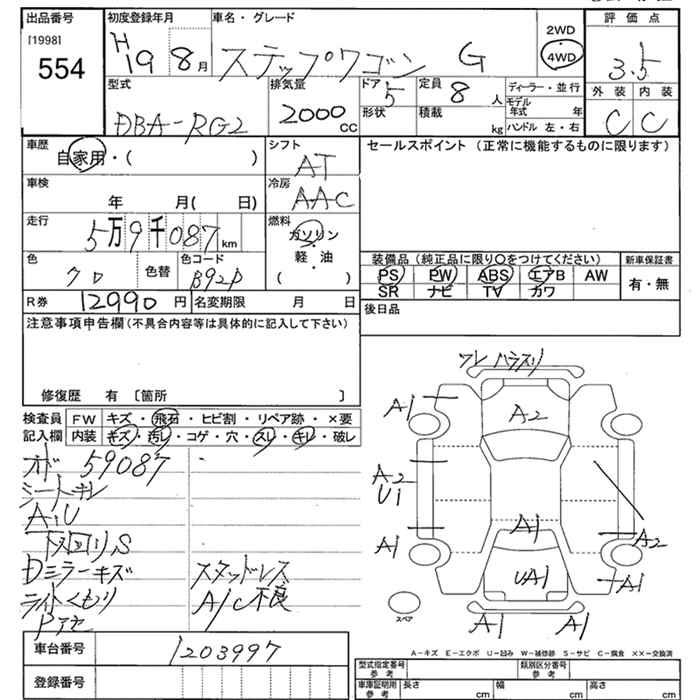 出品番号
[1998]
554
初度登録年月
H19 8月
車名・グレード
ステップワゴン G
2WD
4WD
評価点
3.5
外装 内装
C C
型式
DBA-RG2
排気量
2000cc
ドア 5
形状
定員 8人
積載 kg
ディーラー・並行
モデル年式 年
ハンドル 左・右
車歴
自家用・( )
シフト
AT
車検
年 月( 日)
冷房
AAC
走行
5万9千087km
燃料
ガソリン
軽・油
( )
色
クロ
色替
色コード
B92P
R券 12990円
名変期限 月 日
セールスポイント(正常に機能するものに限ります)
装備品(純正品に限り〇をつけてください)
PS PW ABS エアB AW
SR ナビ TV カワ
新車保証書
有・無
後日品
注意事項申告欄(不具合内容等は具体的に記入して下さい)
修復歴 有 〔箇所 〕
検査員記入欄
FW キズ・飛石・ヒビ割・リペア跡・×要
内装 キズ・汚レ・コゲ・穴・スレ・キレ・破レ
オド 59087
シートキレ
A,U
下回リS
Dミラーキズ
スタッドレス
ライトくもり
A/C不良
Pアセ
車台番号
1203997
登録番号
ワレ ハラスリ
A1
A2
A2
U1
A1
A1
A2
A1
UA1
A1 A1
スペア
A-キズ E-エクボ U-凹み W-補修跡 S-サビ C-腐食 ××-交換済
型式指定番号
参考
類別区分番号
参考
車庫証明用
参考
長さ cm
幅 cm
高さ cm